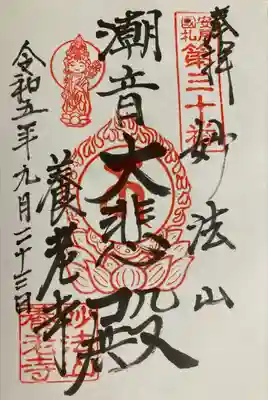 奉拝
安房
國札
第三十番
妙法山
潮音大悲殿
養老寺
令和五年九月二十三日
妙法山
養老寺